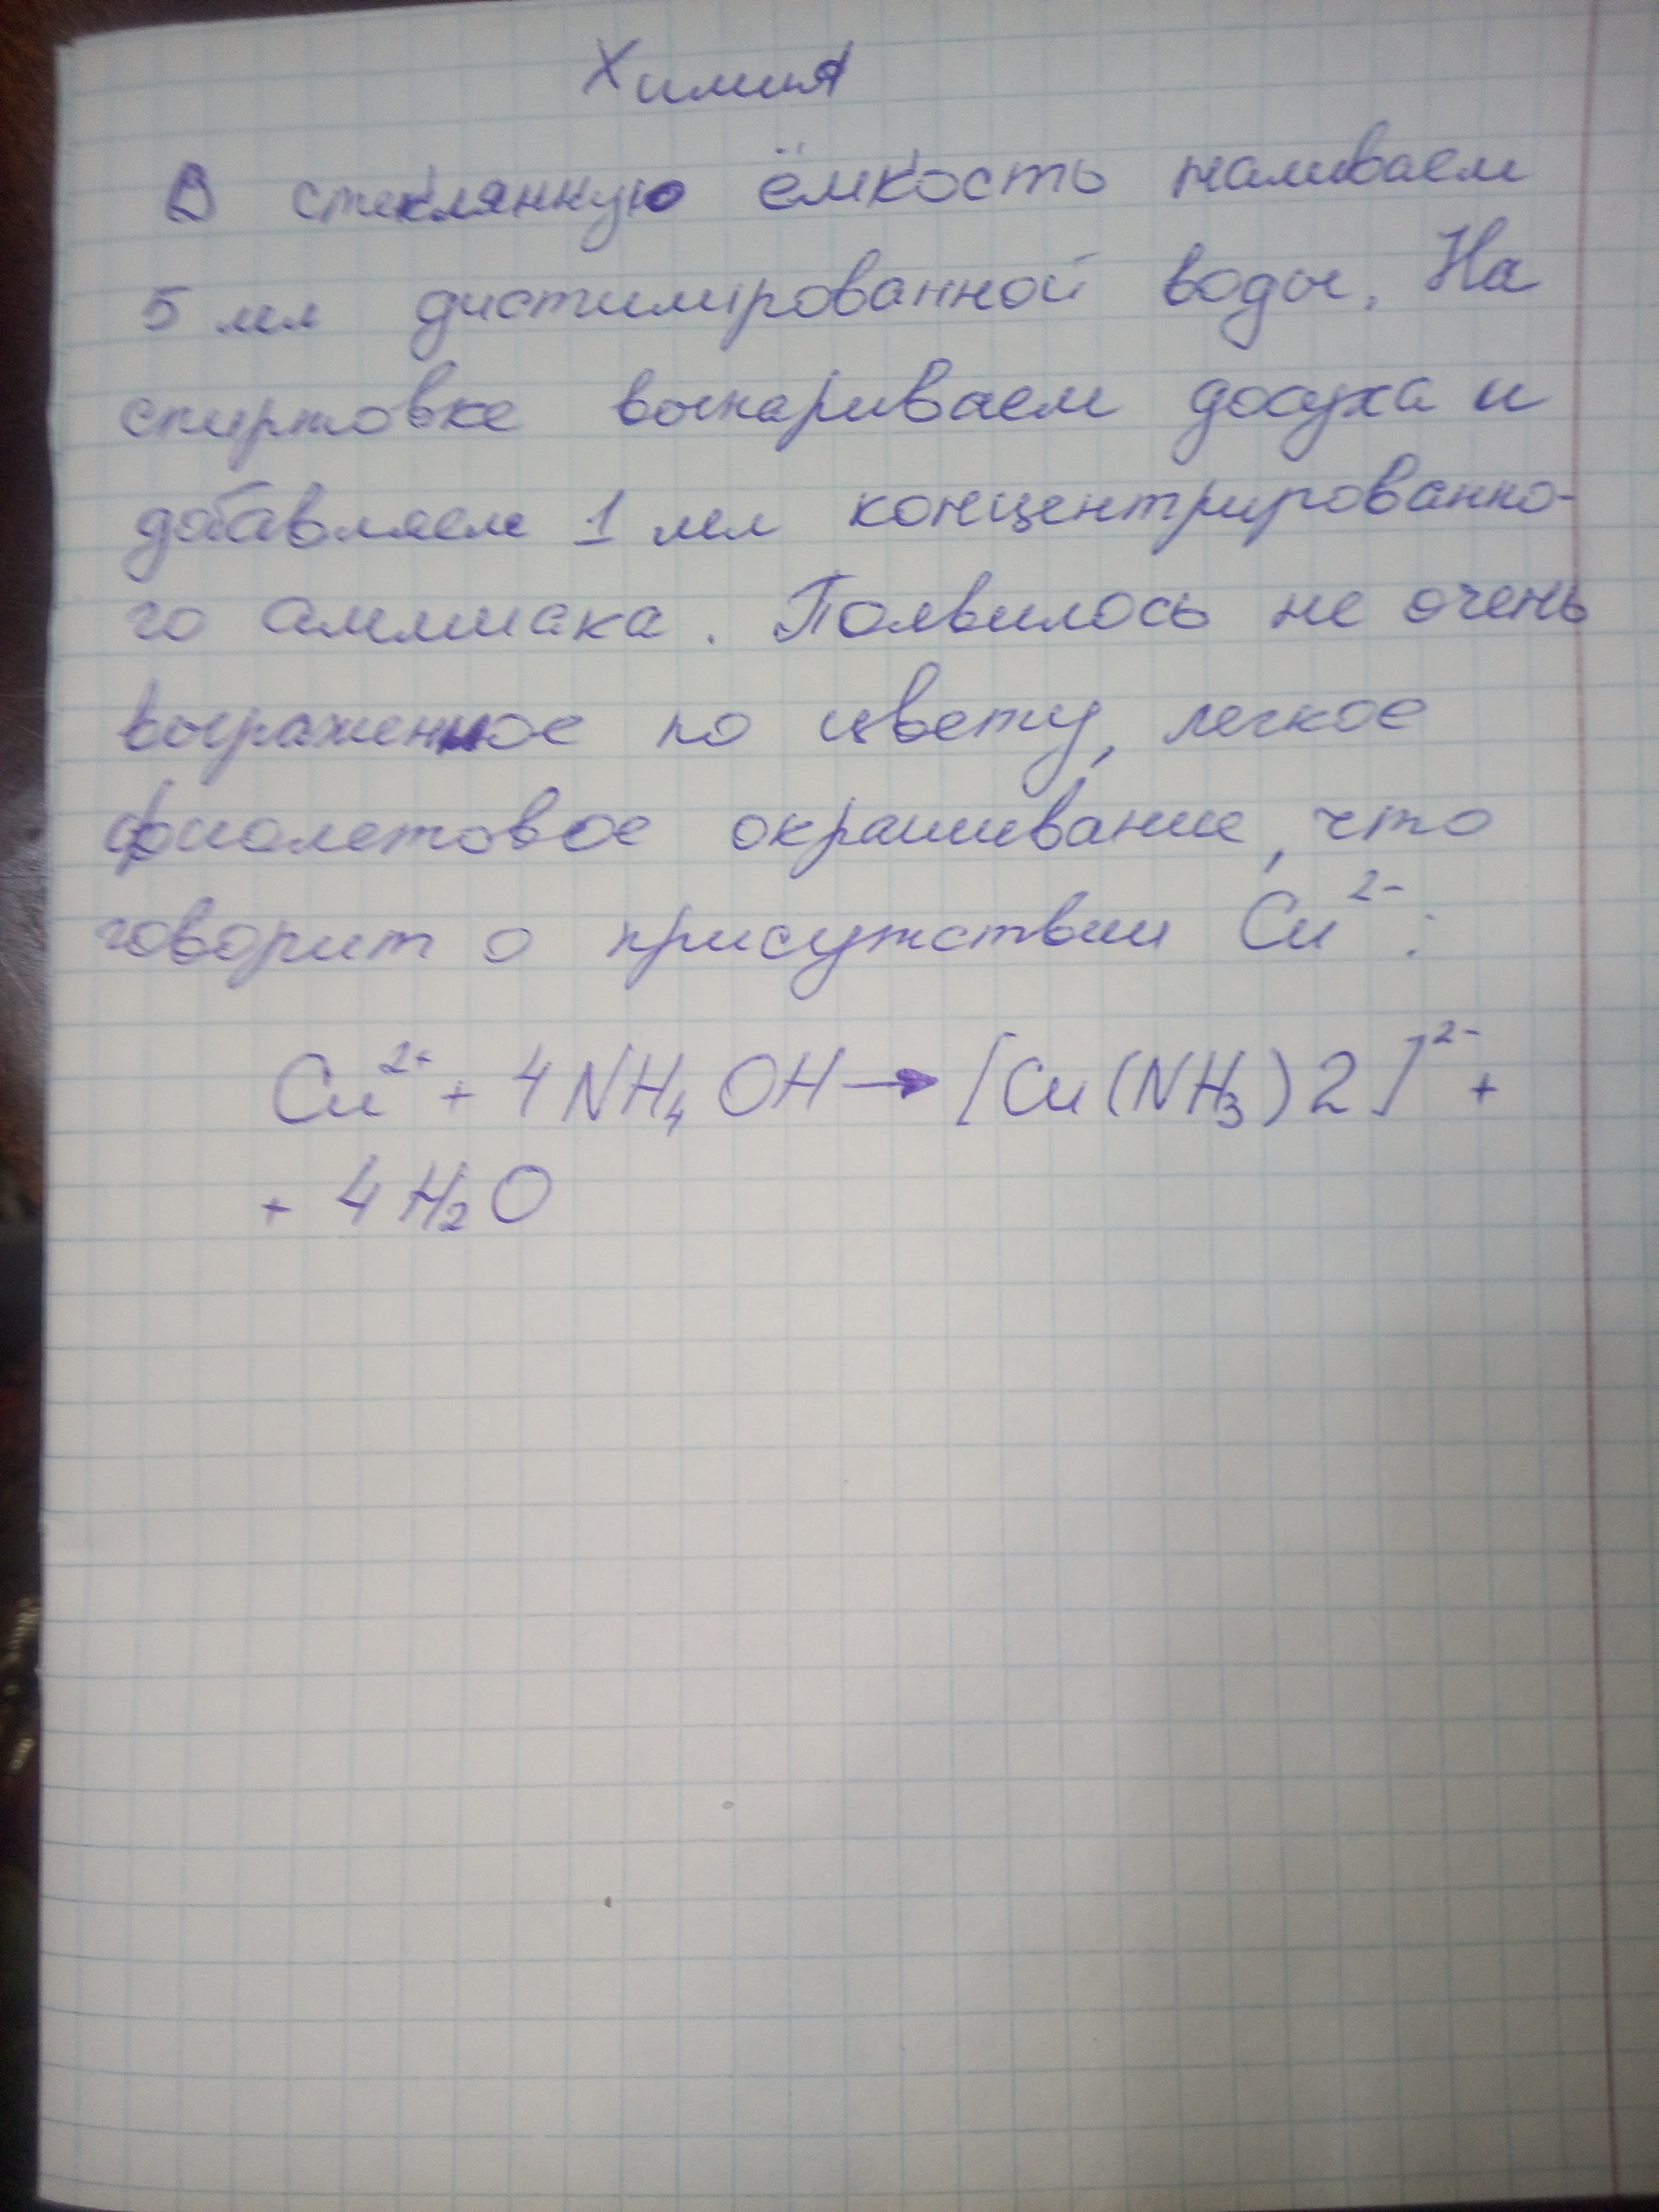 Химия
В стеклянную ёмкость наливаем
5 мл дистиллированной воды. На
спиртовке выпариваем досуха и
добавляем 1 мл концентрированно-
го аммиака. Появилось не очень
выраженное по цвету, легкое
фиолетовое окрашивание, что
говорит о присутствии Cu²⁻:
Cu²⁺ + 4NH₄OH → [Cu(NH₃)2]²⁻ +
+ 4H₂O